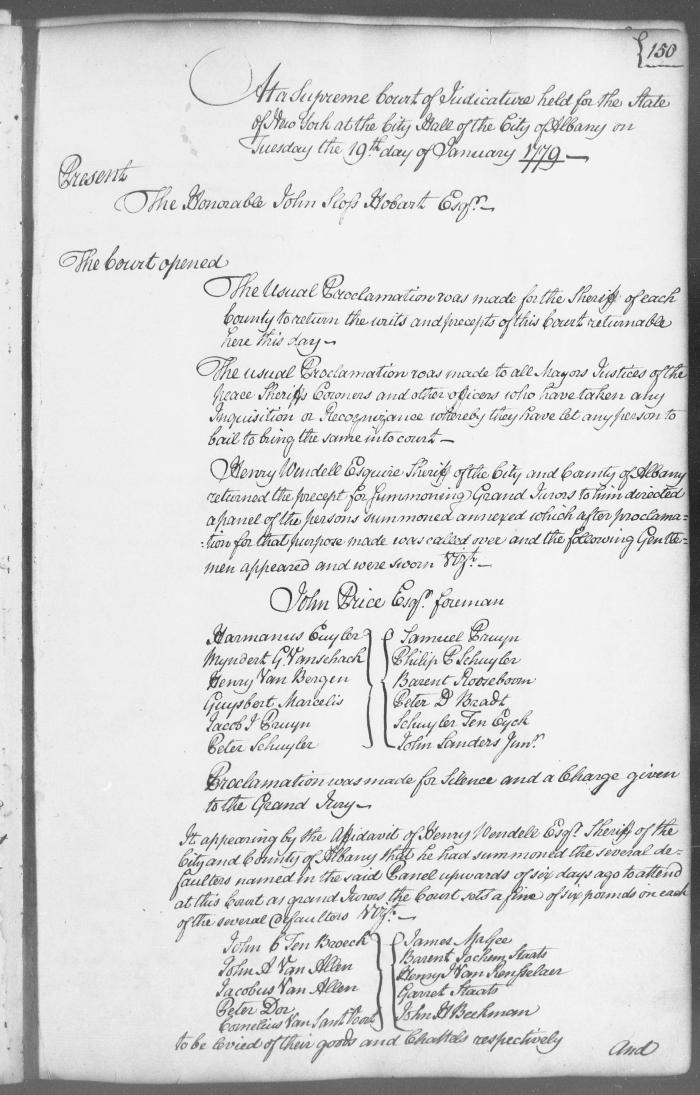 150
At a Supreme Court of Judicature held for the State
of New York at the City Hall of the City of Albany on
Tuesday the 19th day of January 1779—
Present
The Honorable John Sloss Hobart Esqr.—
The Court opened
The Usual Proclamation was made for the Sheriff of each
County to return the writs and precepts of this Court returnable
here this day—
The usual Proclamation was made to all Mayors Justices of the
peace Sheriffs Coroners and other officers who have taken any
Inquisition or Recognizance whereby they have let any person to
bail to bring the same into court—
Henry Wendell Esquire Sheriff of the City and County of Albany
returned the precept for summoning Grand Jurors to him directed
a panel of the persons summoned annexed which after proclama=
=tion for that purpose made was called over and the following Gentle=
men appeared and were sworn Vizt.—
John Price Esqr. foreman
Harmanus Cuyler } { Samuel Pruyn
Myndert G. Vanschach Philip P Schuyler
Henry Van Bergen Barent Roozeboom
Guysbert Marcelis Peter D Bradt
Jacob I Pruyn Schuyler Ten Eyck
Peter Schuyler John Sanders Junr.
Proclamation was made for Silence and a Charge given
to the Grand Jury—
It appearing by the Affidavit of Henry Wendell Esqr. Sheriff of the
City and County of Albany that he had summoned the several de=
faulters named in the said Panel upwards of six days ago to attend
at this Court as grand Jurors the Court sets a fine of six pounds on each
of the several defaulters Vizt.—
John C Ten Broeck } { James McGee
John A Van Allen Barent Jochem Staats
Jacobus Van Allen Henry I Van Rensselaer
Peter Dor Garret Staats
Cornelius Van Sant Voort John H Beekman
to be levied of their goods and Chattels respectively
And